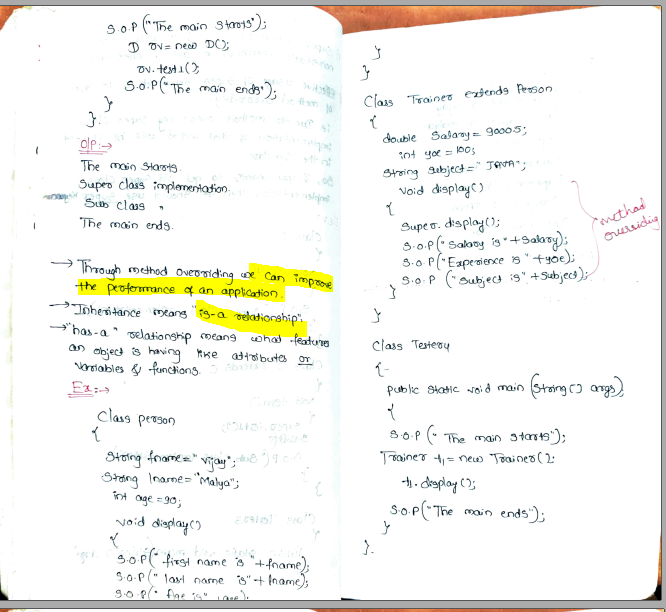 S.O.P ("The main starts");
D ov= new D();
ov.test1();
S.O.P("The main ends");
}
}.
O/P:→
The main starts.
Super class implementation.
Sub class "
The main ends.
→ Through method overriding we can improve
the performance of an application.
→ Inheritance means "is-a relationship".
→ "has-a" relationship means what features
an object is having like attributes or
variables & functions.
Ex:→
Class person
{
String fname=" Vijay";
String lname="Malya";
int age =90;
void display()
{
S.O.P(" first name is "+fname);
S.O.P (" last name is"+ lname);
S.O.P (" Age is" +age);
}
}
Class Trainer extends Person
{
double Salary= 9000.5;
int yoe = 100;
String subject=" JAVA";
void display()
{
Super. display();
S.O.P (" Salary is "+Salary);
S.O.P ("Experience is "+yoe);
S.O.P ("Subject is" +Subject);
}
method
overriding
}
Class Testery
{
public static void main (String () args)
{
S.O.P (" The main starts");
Trainer t1= new Trainer();
t1. display ();
S.O.P("The main ends");
}
}.